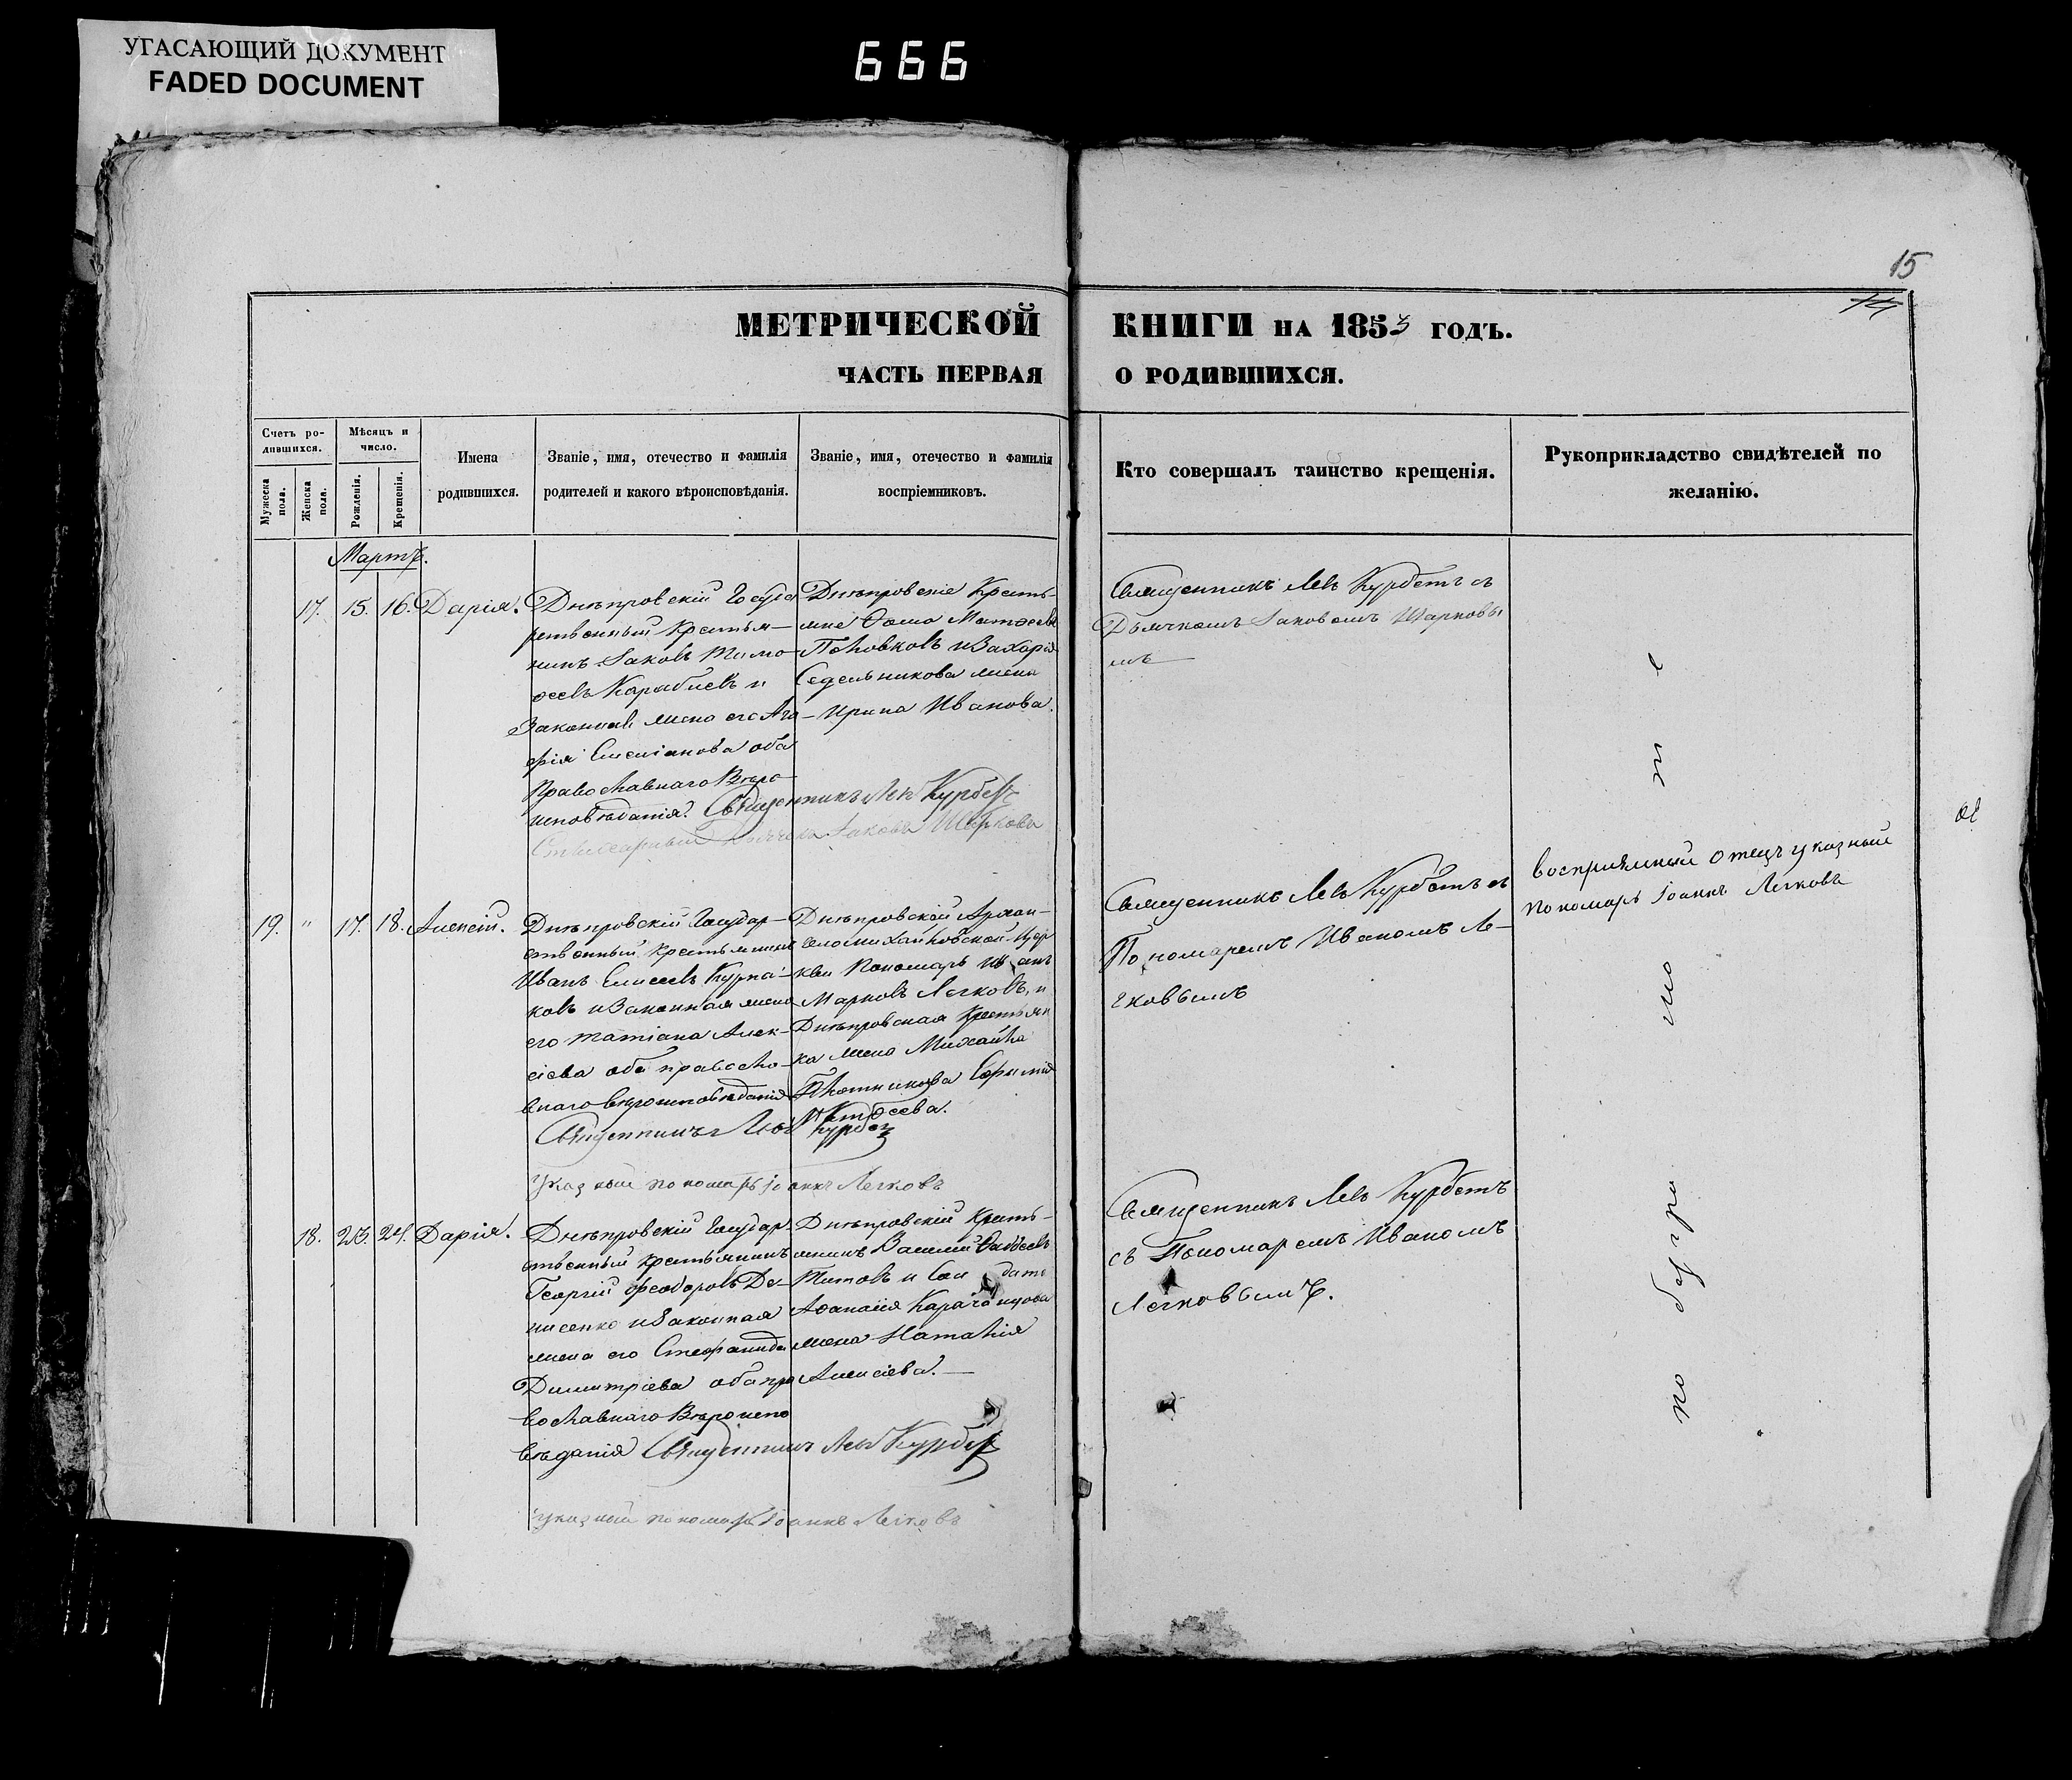 УГАСАЮЩИЙ ДОКУМЕНТ
FADED DOCUMENT
666
15
МЕТРИЧЕСКОЙ КНИГИ НА 1853 ГОДЪ.
ЧАСТЬ ПЕРВАЯ О РОДИВШИХСЯ.
Счетъ ро-
дившихся.
Мужеска пола.
Женска пола.
Мѣсяцъ и
число.
Рожденія.
Крещенія.
Имена
родившихся.
Званіе, имя, отечество и фамилія
родителей и какого вѣроисповѣданія.
Званіе, имя, отечество и фамилія
воспріемниковъ.
Кто совершалъ таинство крещенія.
Рукоприкладство свидѣтелей по
желанію.
Мартъ.
17. 15. 16. Дарія.
Днѣпровскій Госуда
рственный Крестья-
нинъ Іаковъ Тимо-
ѳеевъ Караблевъ и
Законная жена его Ага-
фія Емеліанова оба
Православнаго Вѣро-
исповѣданія. Священникъ Левъ Курбетъ
Дьячекъ Іаковъ Шарковъ
Днѣпровскіе Кресть-
яне Ѳома Матѳеевъ
Половковъ и Захарія
Седельникова жена
Ирина Иванова.
Священникъ Левъ Курбетъ съ
Дьячкомъ Іаковомъ Шарковы
мъ
19. " 17. 18. Алексій.
Днѣпровскій Государ-
ственный крестьянинъ
Иванъ Елисеевъ Курпа-
ковъ и Законная жена
его Татіана Алек-
сіева оба правосла-
внаго вѣроисповѣданія
Священникъ Левъ Курбетъ
Указный пономарь Іоаннъ Легковъ
Днѣпровской Архан-
геломихайловской Цер
кви Пономарь Иванъ
Марковъ Легковъ, и
Днѣпровская Крестьян
ка жена Михаила
Плотникова Евфимія
Матѳеева.
Священникъ Левъ Курбетъ съ
Пономаремъ Иваномъ Ле-
гковымъ
воспріемный отецъ указный
пономарь Іоаннъ Легковъ
18. 23. 24. Дарія.
Днѣпровскій Государ-
ственный крестьянинъ
Георгій Феодоровъ Де-
нисенко и Законная
жена его Стефанида
Димитріева оба пра
вославнаго Вѣроиспо
вѣданія Священникъ Левъ Курбетъ
указный пономарь Іоаннъ Легковъ
Днѣпровскій Кресть-
янинъ Василій Фаддеевъ
Титовъ и Сол дата
Аѳанасія Карачанцова
жена Наталія
Алексіева.
Священникъ Левъ Курбетъ
съ Пономаремъ Иваномъ
Легковымъ.